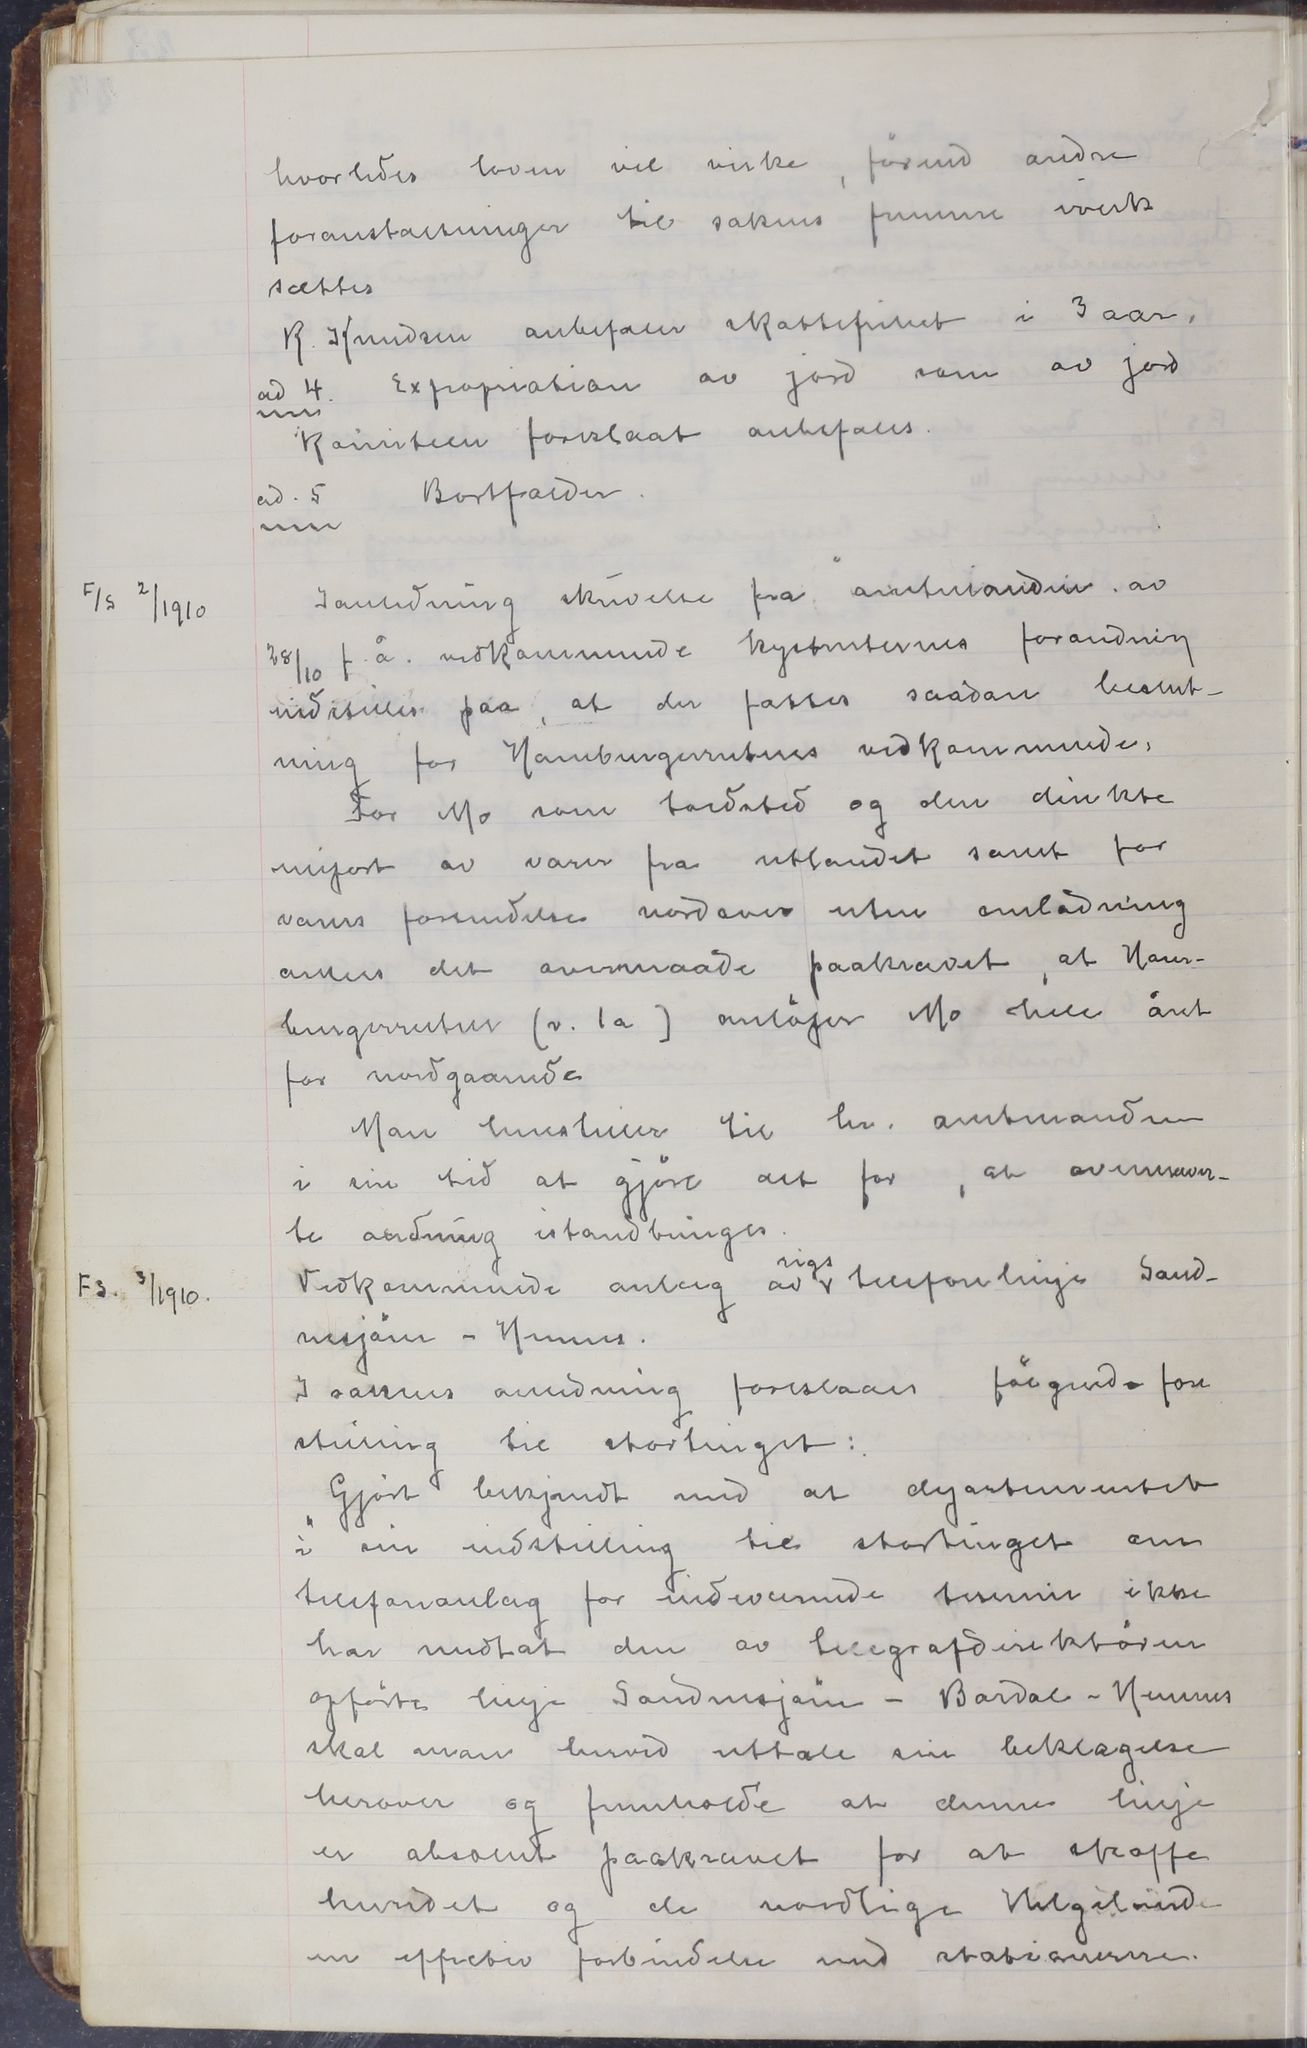 hvorledes loven vil virke, förend andre
foranstaltninger til sakens fremme iverk
sættes
K. Knudsen anbefaler skattefrihet i 3 aar.
ad 4. Expropriation av jord som av jord
Komiteen foreslaat anbefales.
ad. 5 Bortfalder.
F/S 2/1910 I anledning skrivelse fra amtmanden av
28/10 f. å. vedkommende kystruternes forandring
indstilles paa, at der fattes saadan beslut-
ning for Hamburgerrutens vedkommende:
For Mo som toldsted og den direkte
import av varer fra utlandet samt for
varers forsendelse nordover uten omladning
ansees det overmaade paakrævet, at Ham-
burgerruten (r. 1a) anlöper Mo hele året
for nordgaaende
Man henstiller til hr. amtmanden
i sin tid at gjöre alt for, at ovennævn-
te ordning istandbringes.
F S. 3/1910. Vedkommende anlæg av rigstelefonlinje Sand-
nesjöen - Hemnes.
I sakens anledning foreslaaes fölgende fore
stilling til stortinget:
"Gjört bekjendt med at departementet
i sin indstilling til stortinget om
telefonanlæg for indeværende termin ikke
har medtat den av telegrafdirektören
opförte linje Sandnesjöen - Bardal - Hemnes
skal man herved uttale sin beklagelse
herover og fremholde at denne linje
er absolut paakrævet for at skaffe
herredet og de nordlige Helgeland
en effektiv forbindelse med stationerne.